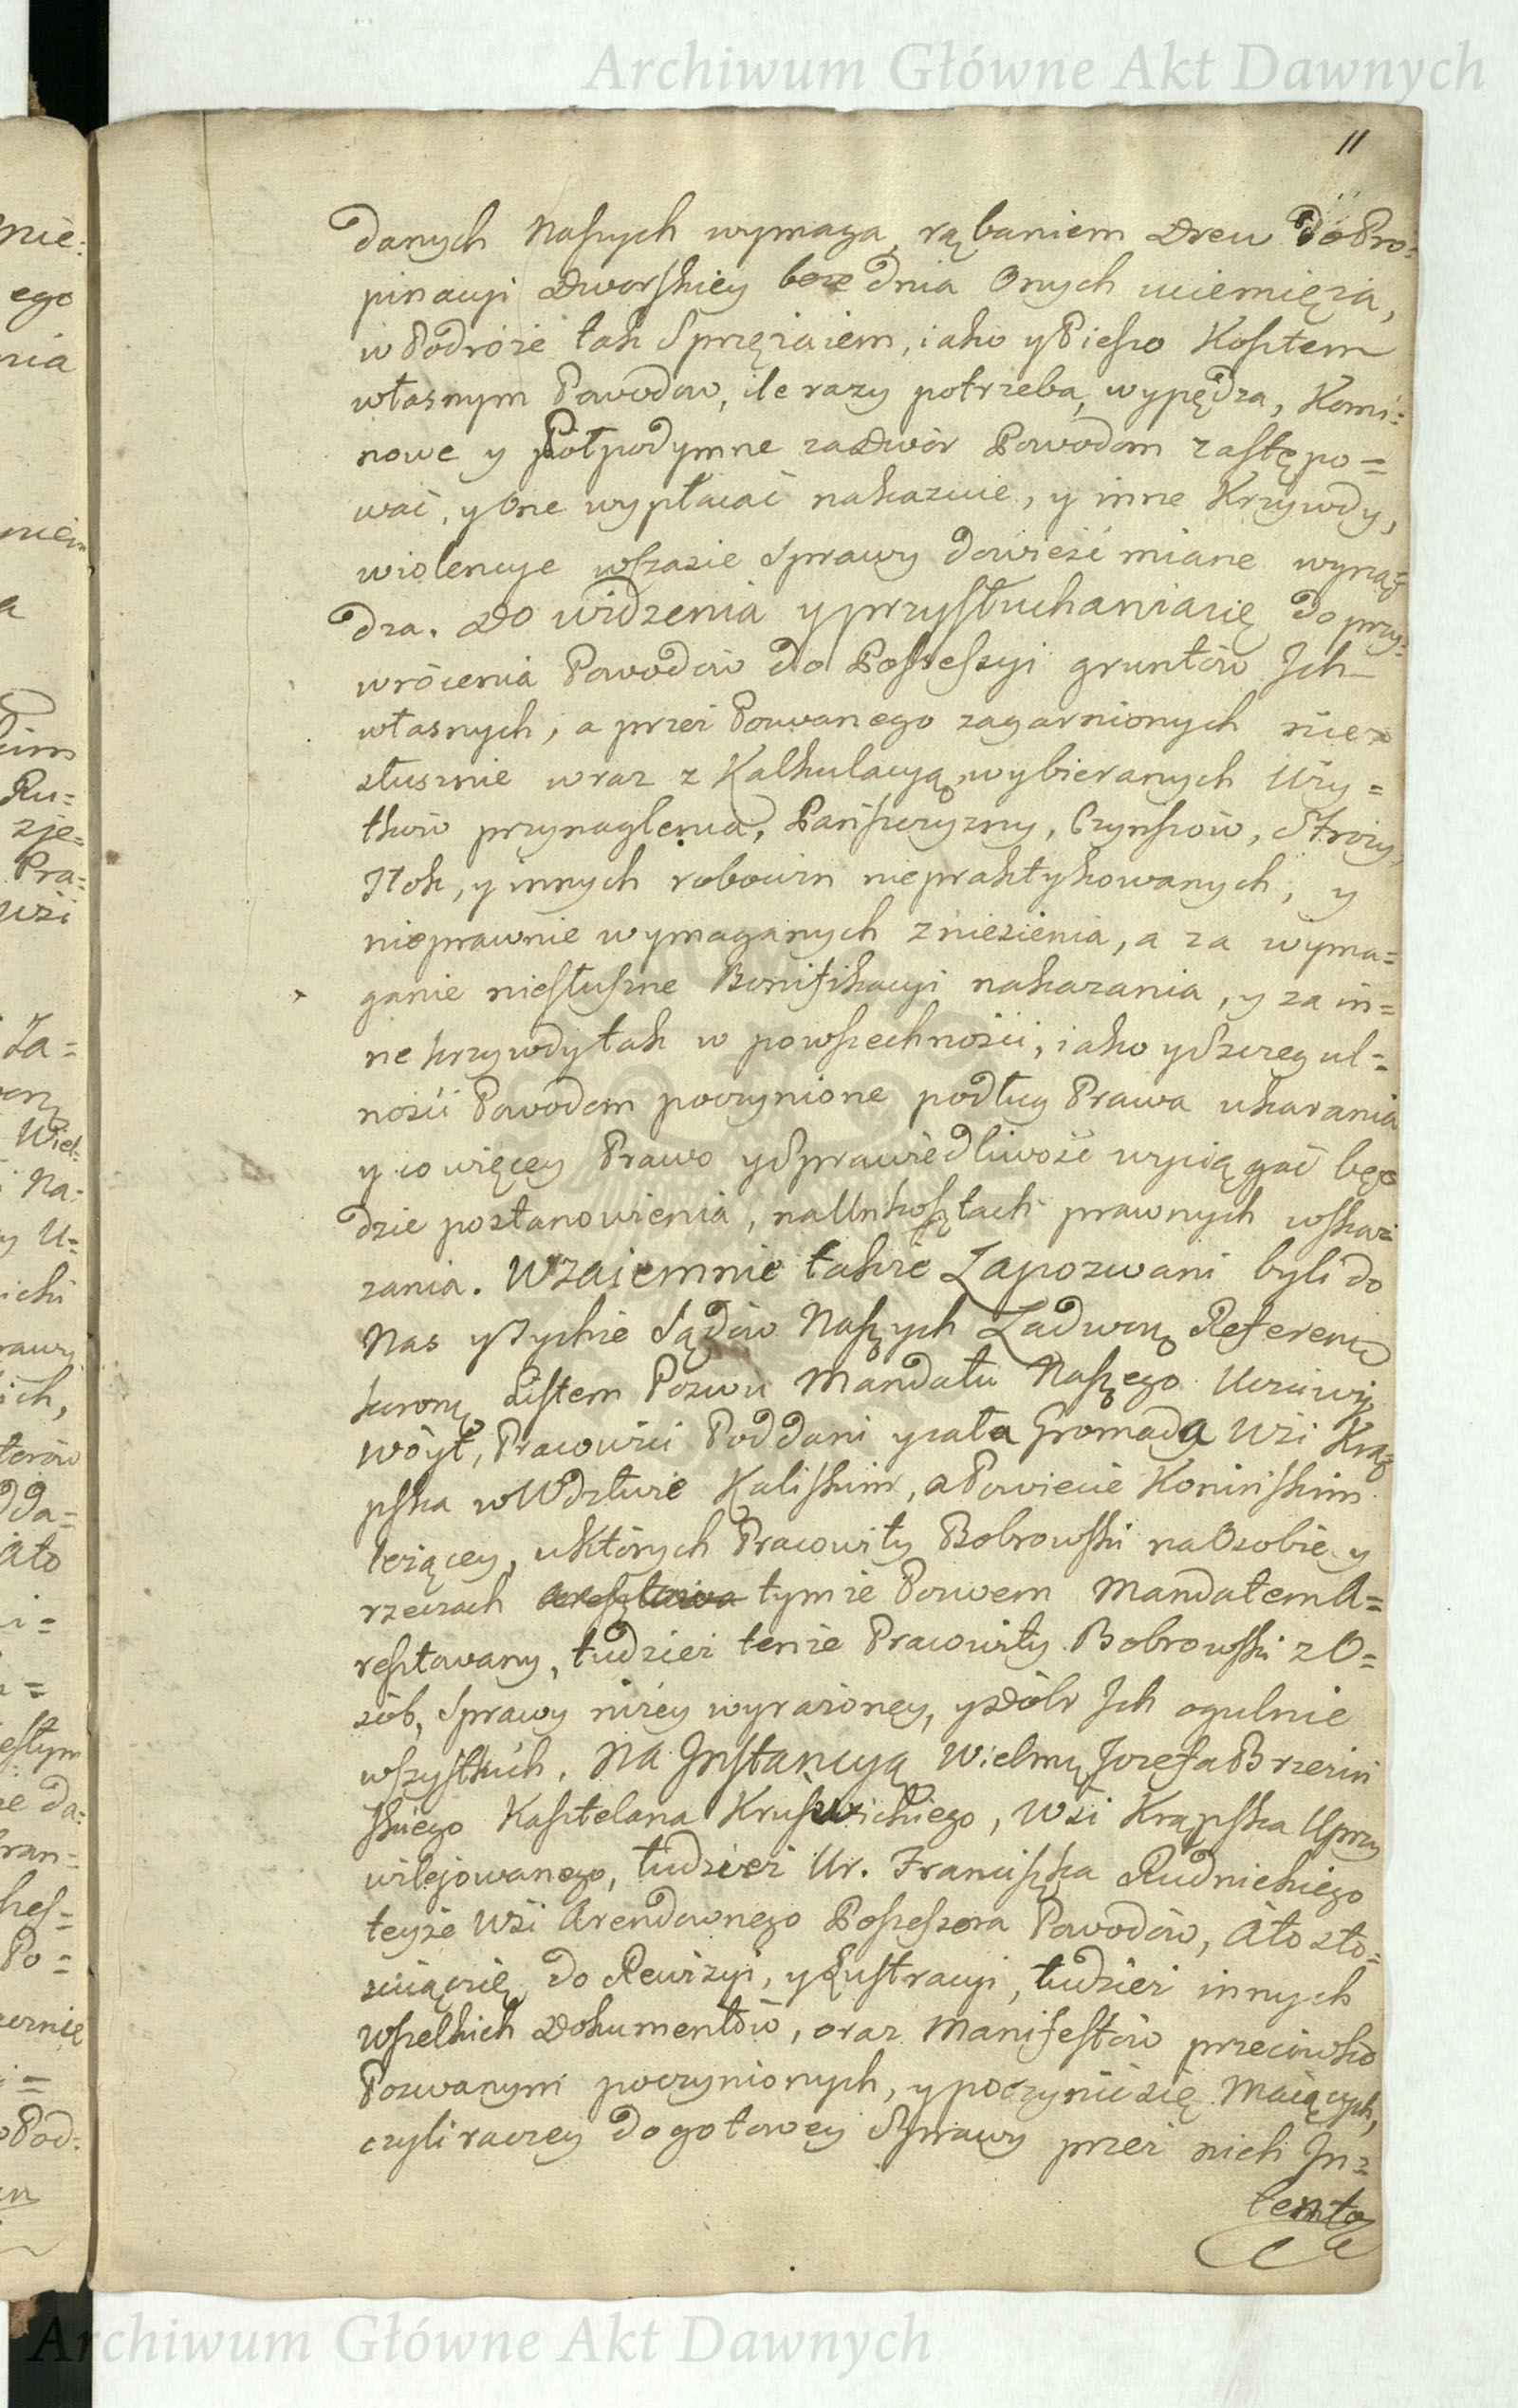 Archiwum Główne Akt Dawnych
11
danych Naszych wymaga, rąbaniem Drew do Pro=
pinacyi Dworskiey beze dnia Onych uciemięża,
w Podróże tak Sprzężaiem, iako y Pieszo Kosztem
własnym Powodów, ile razy potrzeba, wypędza, Komi=
nowe y Półpodymne za Dwór Powodom zastępo=
wać, y One wypłacać nakazuie, y inne Krzywdy,
wiolencye w czasie Sprawy dowieść miane wyrzą=
dza. Do widzenia y przysłuchania się do przy=
wrócenia Powodów do Possessyi gruntów Ich
własnych, a przez Pozwanego zagarnionych nie=
słusznie wraz z Kalkulacyą wybieranych Uży=
tków przynaglenia, Pańszczyzny, Czynszów, Stroży,
Tłok, y innych robocizn niepraktykowanych, y
nieprawnie wymaganych zniesienia, a za wyma=
ganie niesłuszne Bonifikacyi nakazania, y za in=
ne krzywdy tak w powszechności, iako y Szczegul=
ności Powodom poczynione podług Prawa ukarania
y co więcey Prawo y Sprawiedliwość wyciągać bę=
dzie postanowienia, na Unkosztach prawnych wska=
zania. Wzaiemnie także Zapozwani byli do
Nas y Tychże Sądów Naszych Zadwor: Referen=
karony Listem Pozwu Mandatu Naszego Uczciwy
Wóyt, Pracowici Poddani y cała Gromada Wsi Krą=
pska w Wdztwie Kaliskim, a Powiecie Konińskim
leżącey, u których Pracowity Bobrowski na Osobie y
rzeczach tymże Pozwem Mandatem A=
resztowany, tudzież tenże Pracowity Bobrowski z O=
sób, Sprawy niżey wyrażoney, y Dóbr Ich ogulnie
wszystkich. Na Instancyą Wielmo: Jozefa Brzeziń
skiego Kasztelana Kruszwickiego, Wsi Krąpska Uprzy
wilejowanego, tudzież Ur. Franciszka Rudnickiego
teyże Wsi Arendownego Possessora Powodów, A to sto=
suiąc się do Rewizyi, y Lustracyi, tudzież innych
Wszelkich Dokumentów, oraz Manifestów przeciwko
Pozwanym poczynionych, y poczynić się Maiących,
czyli raczey do gotowey Sprawy przez nich In=
tento
Archiwum Główne Akt Dawnych